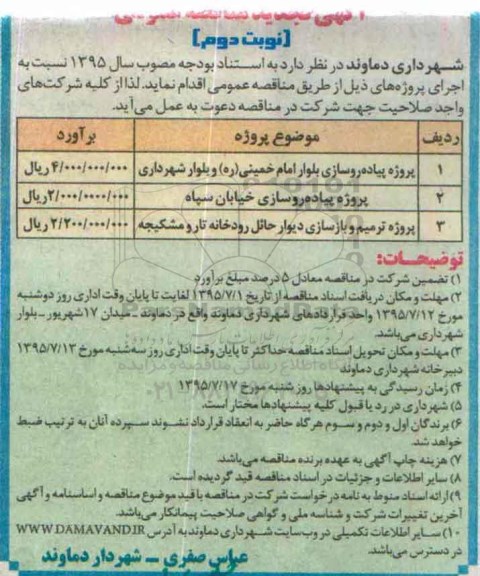 آگهی تجدید مناقصه عمومی
(نوبت دوم)
شهرداری دماوند در نظر دارد به استناد بودجه مصوب سال ۱۳۹۵ نسبت به
اجرای پروژه‌های ذیل از طریق مناقصه عمومی اقدام نماید. لذا از کلیه شرکت‌های
واجد صلاحیت جهت شرکت در مناقصه دعوت به عمل می‌آید.
ردیف موضوع پروژه برآورد
۱ پروژه پیاده‌روسازی بلوار امام خمینی(ره) و بلوار شهرداری ۴/۰۰۰/۰۰۰/۰۰۰ ریال
۲ پروژه پیاده‌روسازی خیابان سپاه ۲/۰۰۰/۰۰۰۰/۰۰۰ ریال
۳ پروژه ترمیم و بازسازی دیوار حائل رودخانه تار و مشکیجه ۲/۲۰۰/۰۰۰/۰۰۰ ریال
توضیحات:
۱) تضمین شرکت در مناقصه معادل ۵ درصد مبلغ برآورد
۲) مهلت و مکان دریافت اسناد مناقصه از تاریخ ۱۳۹۵/۷/۱ لغایت تا پایان وقت اداری روز دوشنبه
مورخ ۱۳۹۵/۷/۱۲ واحد قراردادهای شهرداری دماوند واقع در دماوند - میدان ۱۷شهریور - بلوار
شهرداری می‌باشد.
۳) مهلت و مکان تحویل اسناد مناقصه حداکثر تا پایان وقت اداری روز سه‌شنبه مورخ ۱۳۹۵/۷/۱۳
دبیرخانه شهرداری دماوند
۴) زمان رسیدگی به پیشنهادها روز شنبه مورخ ۱۳۹۵/۷/۱۷
۵) شهرداری در رد یا قبول کلیه پیشنهادها مختار است.
۶) برندگان اول و دوم و سوم هرگاه حاضر به انعقاد قرارداد نشوند سپرده آنان به ترتیب ضبط
خواهد شد.
۷) هزینه چاپ آگهی به عهده برنده مناقصه می‌باشد.
۸) سایر اطلاعات و جزئیات در اسناد مناقصه قید گردیده است.
۹) ارائه اسناد منوط به نامه درخواست شرکت در مناقصه با قید موضوع مناقصه و اساسنامه و آگهی
آخرین تغییرات شرکت و شناسه ملی و گواهی صلاحیت پیمانکار می‌باشد.
۱۰) سایر اطلاعات تکمیلی در وب‌سایت شهرداری دماوند به آدرس WWW.DAMAVAND.IR
در دسترس می‌باشد.
عباس صفری - شهردار دماوند